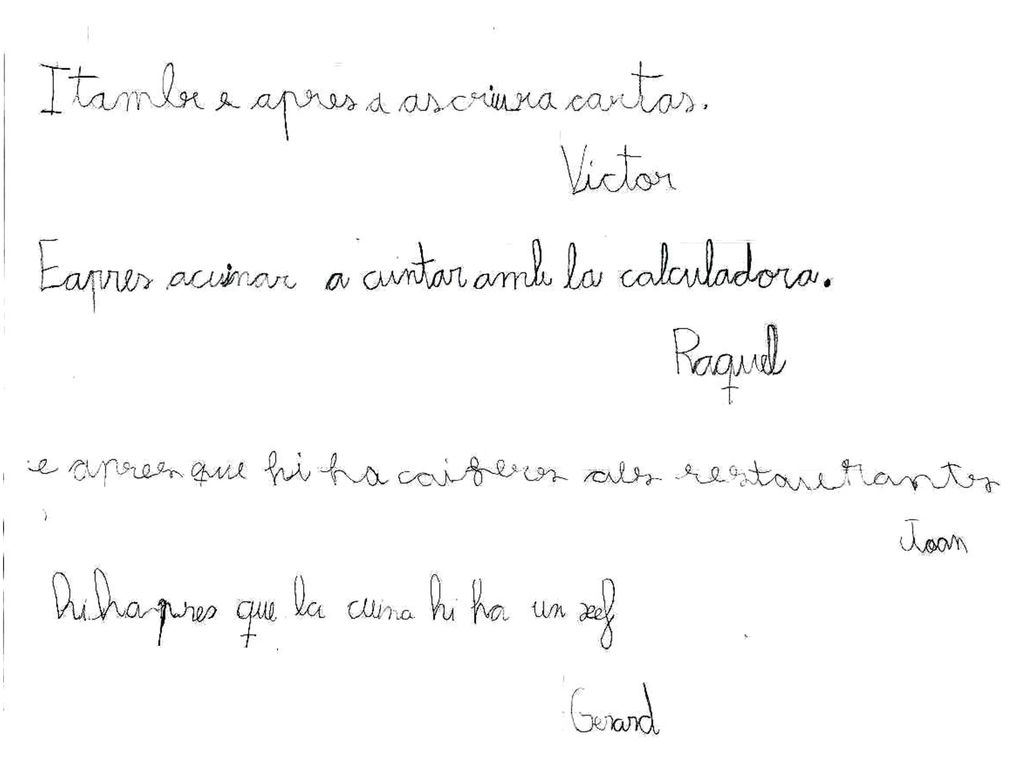 I tambe e apres a ascriura cartas.
Victor
Eapres acuinar a cuntar amb la calculadora.
Raquel
e apres que hi ha caifers als restaurants
Joan
hi hapres que la cuina hi ha un xef
Gerard